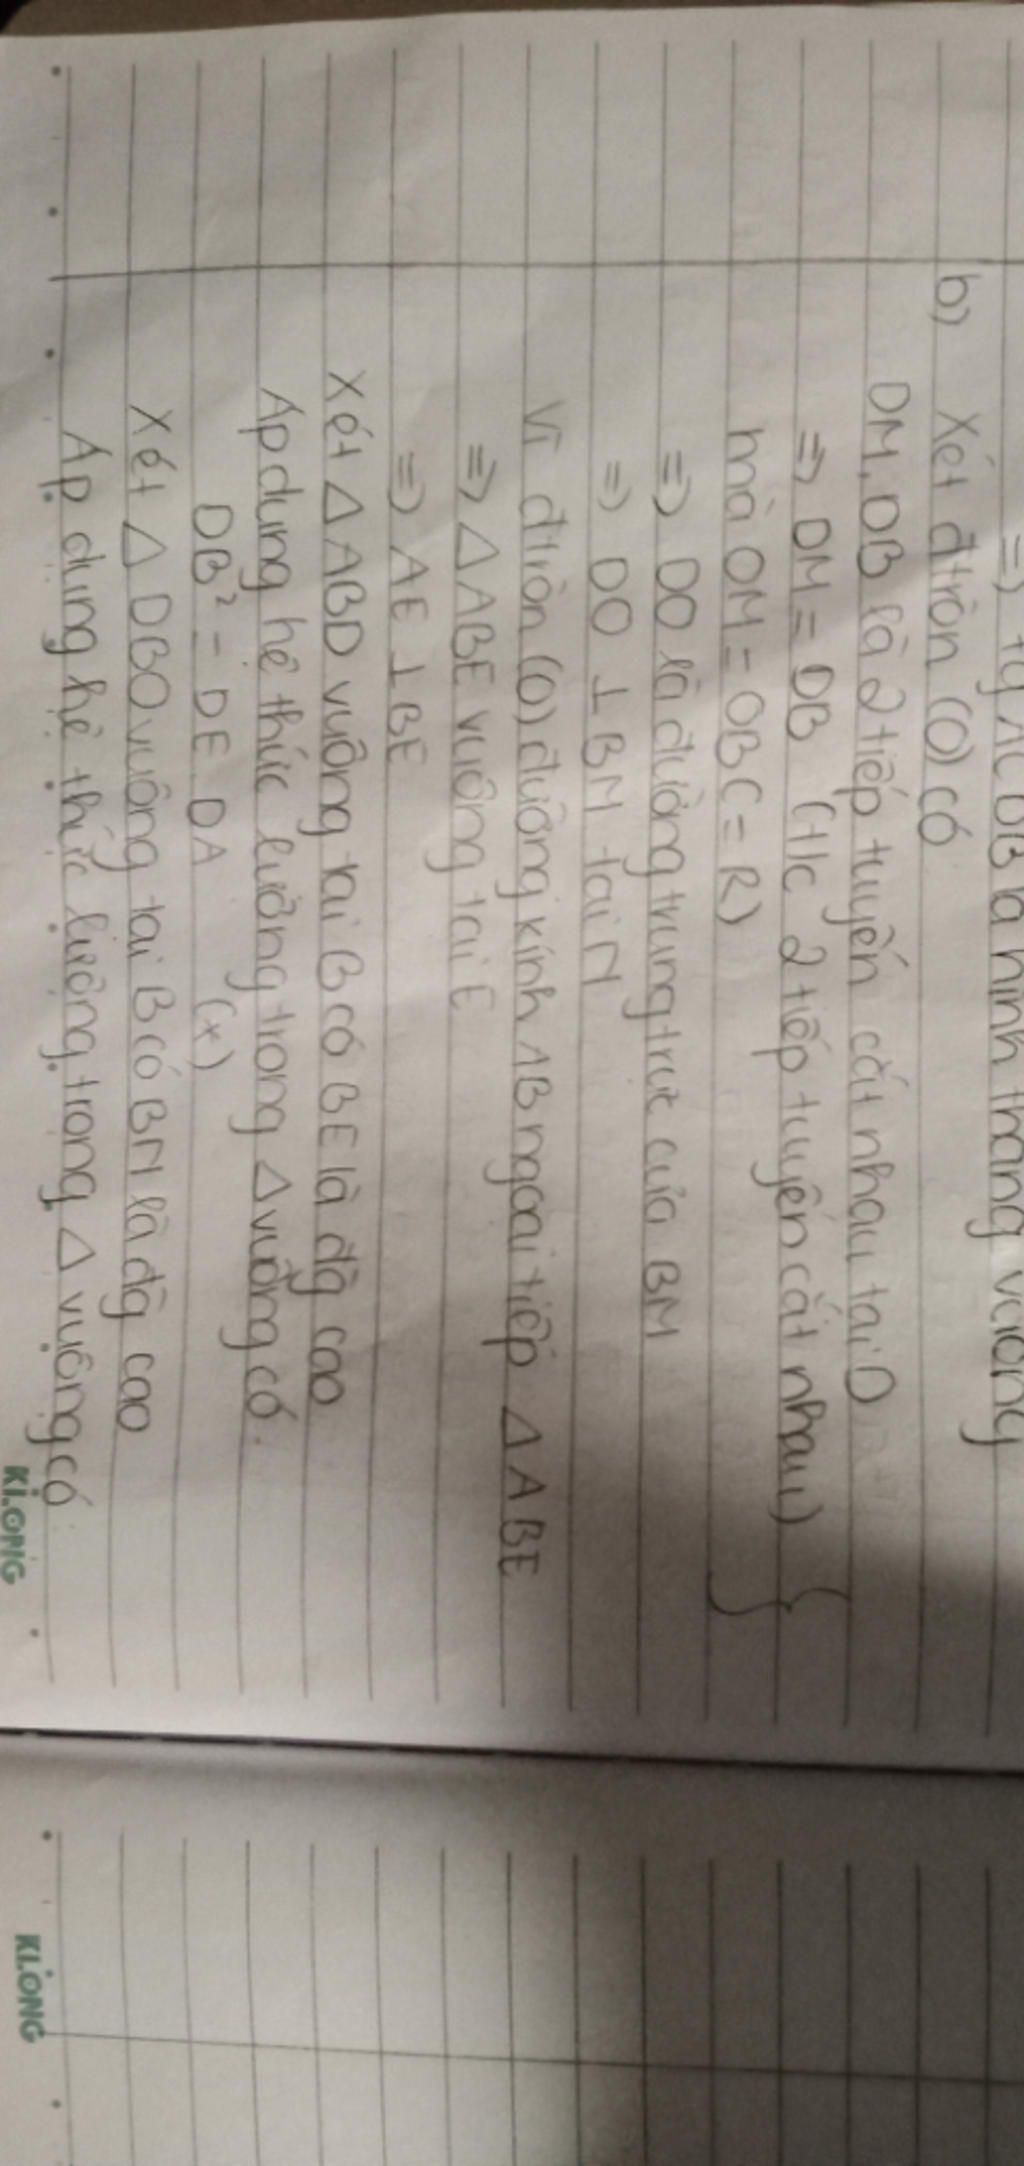 => tg ACDB là hình thang vuông
b) Xét đtròn (O) có
DM, DB là 2 tiếp tuyến cắt nhau tại D
=> DM = DB (t/c 2 tiếp tuyến cắt nhau) }
mà OM = OB (= R)
=> DO là đường trung trực của BM
=> DO ⊥ BM tại N
Vì đtròn (O) đường kính AB ngoại tiếp Δ ABE
=> Δ ABE vuông tại E
=> AE ⊥ BE
Xét Δ ABD vuông tại B có BE là đg cao
Áp dụng hệ thức lượng trong Δ vuông có
DB² = DE. DA (*)
Xét Δ DBO vuông tại B có BN là đg cao
Áp dụng hệ thức lượng trong Δ vuông có
KLONG
KLONG